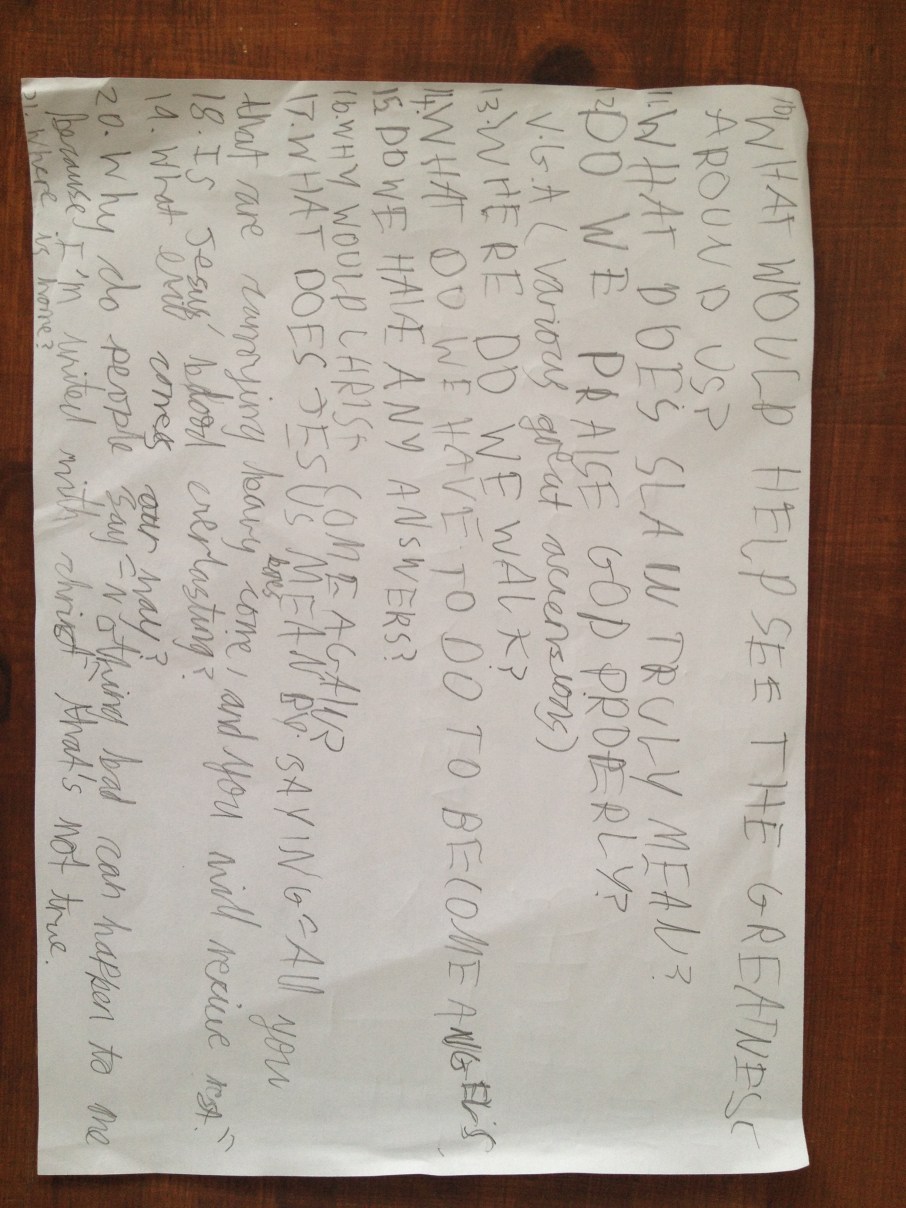 10 WHAT WOULD HELP SEE THE GREATNESS
AROUND US?
11. WHAT DOES SLAIN TRULY MEAN?
12 DO WE PRAISE GOD PROPERLY?
V.G.A ( various great accensions)
13. WHERE DO WE WALK?
14. WHAT DO WE HAVE TO DO TO BECOME ANGELS
15. DO WE HAVE ANY ANSWERS?
16. WHY WOULD CHRIST COME AGAIN?
17. WHAT DOES JESUS MEAN BY: SAYING= All you
that are carrying heavy come, and you will receive rest."
18. IS Jesus' blood everlasting?
19. What evil comes our way?
20. Why do people say="nothing bad can happen to me
because I'm united with christ" that's not true.
21. where is home?